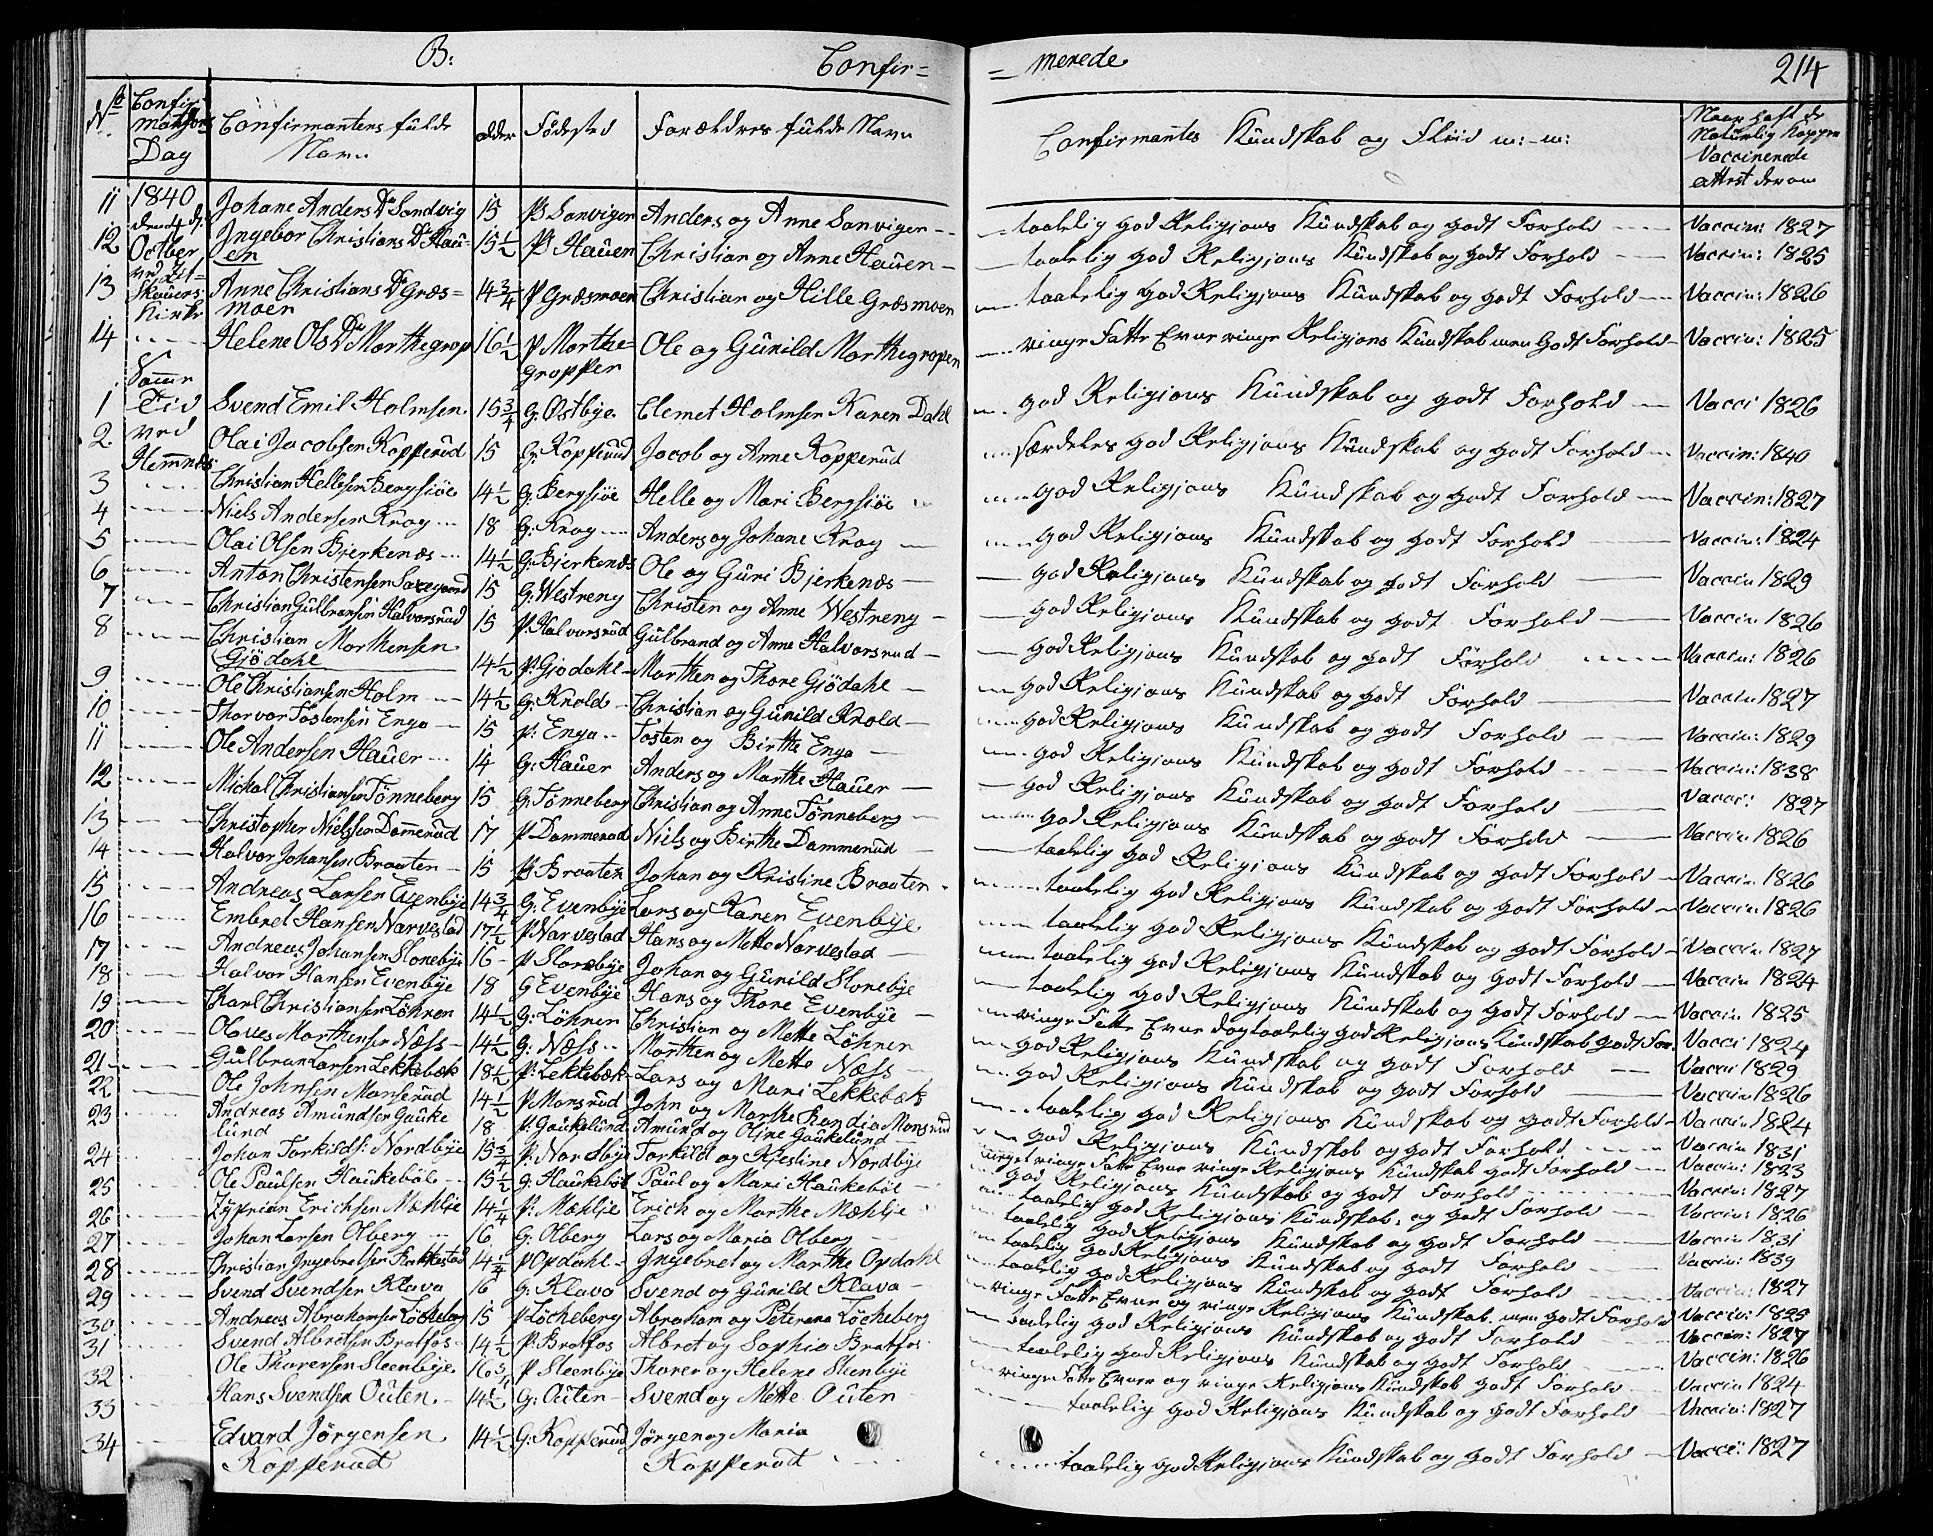 B:
Confir=
= merede
214
No
Confir
mations
Dag
Confirmantens fulde
Navn
alder
Fødested
Forældres fulde Navn
Confirmantes Kundskab og Fliid m:-m:
Naar haft de
Naturlig Kopper
Vaccinerede
attest derom
11 1840 Johane Anders Dr Sandvig 15 P Sanvigen Anders og Anne Sanvigen taalelig god Religjons Kundskab og godt Forhold Vaccin: 1827
den 4 d:
12 Octber Ingebor Christians Dr Hau= 15½ P Hauen Christian og Anne Hauen taalelig god Religjons Kundskab og godt Forhold Vaccin: 1825
en
ved
13 Skauers Anne Christians Dr Græs= 14¾ P Græsmoen Christian og Hille Græsmoen taalelig god Religjons Kundskab og godt Forhold Vaccin: 1826
Kirke moen
14 Helene Ols Dr Marthegrop 16½ P Marthe= Ole og Gunild Marthegropen ringe Fatte Evne ringe Religjons Kundskab men Godt Forhold Vaccin: 1825
groppen
Samme
1 Tid Svend Emil Holmsen 15¾ G: Ostbye Clemet Holmsen Karen Dahl god Religjons Kundskab og godt Forhold Vacci 1826
2 ved Olai Jacobsen Kopperud 15 G: Kopperud Jacob og Anne Kopperud særdeles god Religjons Kundskab og godt Forhold Vaccin: 1840
Hemnes
3 Christian Hellesen Bergsiøe 14½ G: Bergsiøe Helle og Mari Bergsiøe god Religjons Kundskab og godt Forhold Vaccin: 1827
4 Niels Andersen Krog 18 G: Krog Anders og Johane Krog god Religjons Kundskab og godt Forhold Vaccin: 1824
5 Olai Olsen Bjerkenæs 14½ G: Bjerkenæs Ole og Guri Bjerkenæs god Religjons Kundskab og godt Forhold Vaccin 1829
6 Anton Christensen 15 G: Westreng Christen og Anne Westreng god Religjons Kundskab og godt Forhold Vaccin 1826
7 Christian Gulbransen Halvorsrud 15 P. Halvorsrud Gulbrand og Anne Halvorsrud god Religjons Kundskab og godt Forhold Vaccin: 1826
8 Christian Morthensen
Gjödahl 14½ P: Gjødahl Morthen og Thore Gjödahl god Religjons Kundskab og godt Forhold Vaccin 1827
9 Ole Christiansen Holm 14½ G: Knold Christian og Gunild Knold god Religjons Kundskab og godt Forhold Vaccin: 1829
10 Thorvor Tostensen Engo 15 P: Engo Tosten og Birthe Engo god Religjons Kundskab og godt Forhold Vaccin: 1838
11 Ole Andersen Hauer 14 G: Hauer Anders og Marthe Hauer god Religjons Kundskab og godt Forhold Vacci: 1827
12 Mickal Christiansen Tønneberg 15 G: Tønneberg Christian og Anne Tønneberg god Religjons Kundskab og godt Forhold Vaccin 1826
13 Christopher Nielssen Dammerud 17 P Dammerud Niels og Birthe Dammerud taalelig god Religjons Kundskab og godt Forhold Vaccin 1826
14 Halvor Johansen Braaten 15 P Braaten Johan og Kristine Braaten taalelig god Religjons Kundskab og godt Forhold Vaccin 1826
15 Andreas Larsen Evenbye 14¾ G: Evenbye Lars og Karen Evenbye taalelig god Religjons Kundskab og godt Forhold Vaccin 1827
16 Embret Hansen Narvestad 17½ P Narvestad Hans og Mette Narvestad taalelig god Religjons Kundskab og godt Forhold Vaccin 1824
17 Andreas Johansen Slonebye 16 P Slonebye Johan og Gunild Slonebye taalelig god Religjons Kundskab og godt Forhold Vaccin 1825
18 Halvor Hansen Evenbye 18 G Evenbye Hans og Thore Evenbye ringe Fatte Evne dog taalelig god Religjons Kundskab godt For: Vacci 1824
19 Charl Christiansen Løhren 14½ G: Løhren Christian og Mette Löhren god Religjons Kundskab og godt Forhold Vacci 1829
20 Olves Morthensen Næss 14½ G: Næss Morthen og Mette Næss god Religjons Kundskab og godt Forhold Vaccin 1826
21 Gulbran Larsen Lekkebæk 18½ P: Lekkebæk Lars og Mari Lekkebæk taalelig god Religjons Kundskab og godt Forhold Vaccin 1824
22 Ole Johnsen Monserud 14½ P Monsrud John og Marthe Monsrud god Religjons Kundskab og godt Forhold Vaccin 1831
23 Andreas Amundsen Gauke 18 P: Gaukelund Amund og Oline Gaukelund meget ringe Fatte Evne ringe Religjons Kundskab godt Forhold Vaccin: 1823
lund
24 Johan Torkilds: Nordbye 15¾ P: Nordbye Torkild og Kjestine Nordbye god Religjons Kundskab og godt Forhold Vaccin: 1827
25 Ole Paulsen Haukebøl 15½ G: Haukebøl Paul og Mari Haukebøl taalelig god Religjons Kundskab og godt Forhold Vaccin: 1826
26 Zyprian Erichsen Mæhlje 14¼ P: Mæhlje Erich og Marthe Mæhlje taalelig god Religjons Kundskab og godt Forhold Vaccin 1831
27 Johan Larsen Olberg 16 G: Olberg Lars og Maria Olberg taalelig god Religjons Kundskab og godt Forhold Vaccin: 1839
28 Christian Ingebretsen 14½ P Opdahl Ingebret og Marthe Opdahl taalelig god Religjons Kundskab og godt Forhold Vaccin: 1827
29 Svend Svendsen Klava 16 G: Klava Svend og Gunild Klava ringe Fatte Evne og ringe Religjons Kundskab men godt Forhold Vaccin: 1825
30 Andreas Abrahamsen Löcheberg 15 P Löcheberg Abraham og Peternna Löcheberg taalelig god Religjons Kundskab og godt Forhold Vaccin: 1827
31 Svend Albretsen Bratfos 14½ P: Bratfos Albret og Sophia Bratfos taalelig god Religjons Kundskab og godt Forhold Vaccin: 1826
32 Ole Thorersen Steenbye 16¾ P Steenbye Thorer og Helene Stenbye ringe Fatte Evner og ringe Religjons Kundskab godt Forhold Vaccin 1824
33 Hans Svendsen Outen 14½ G: Outen Svend og Mette Outen taalelig god Religjons Kundskab og godt Forhold Vaccin: 1827
34 Edvard Jörgensen 14½ G: Kopperud Jörgen og Maria taalelig god Religjons Kundskab og godt Forhold Vacci: 1827
Kopperud Kopperud